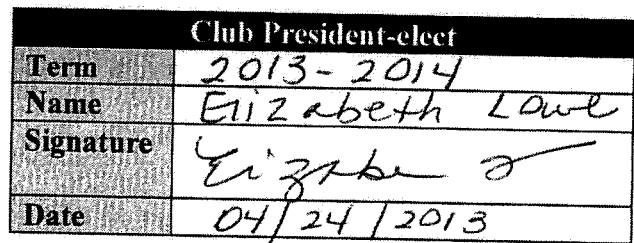 Club President-elect
Term 2013-2014
Name Elizabeth Lowe
Signature
Date 04/24/2013